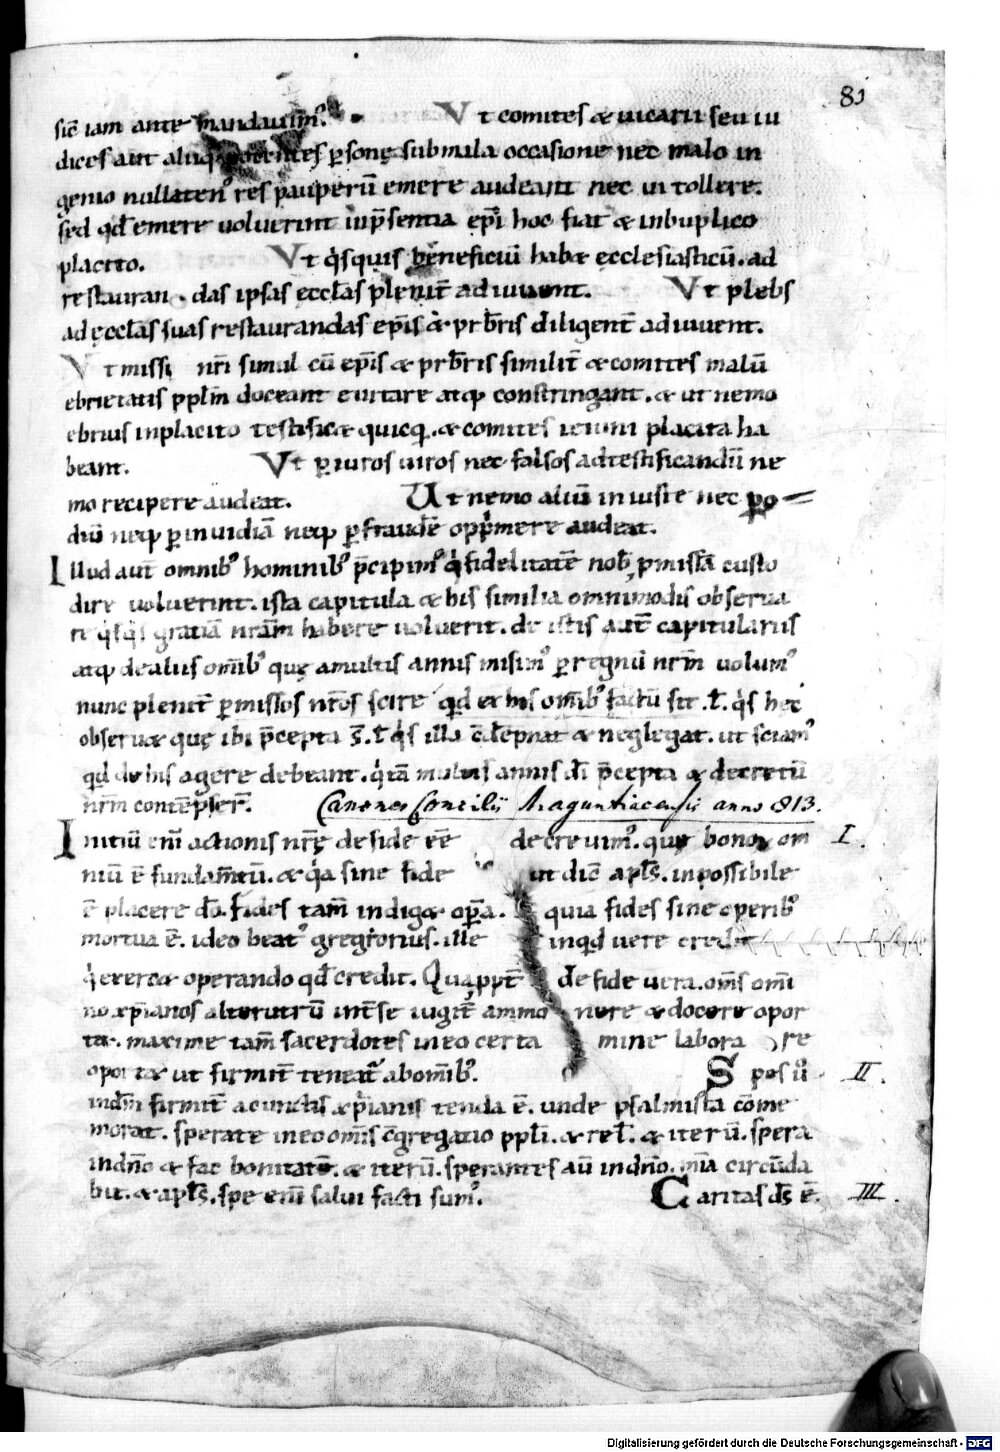 81
sic̄ iam ante mandauim᷒. Vt comites & uicarii seu iu
dices aut aliiq; potentes p̲sonę sub mala occasione nec malo in
genio nullaten᷒ res pauperū emere audeant nec ui tollere.
sed qđ emere uoluerint inp̄sentia ep̄i hoc fiat & inbuplico
placito. Vt q̇squis beneficiū habæ ecclesiasticū. ad
restauran das ipsas ecclas plenit̄ adiuuent. Vt plebs
ad ęcclas suas restaurandas ep̄is & prb̄ris diligent̄ adiuuent.
Vt missi nr̄i simul cū ep̄is & prb̄ris similit̄ & comites malū
ebrietatis ppl̄m doceant euitare atq; constringant. & ut nemo
ebrius inplacito testificæ quicq. & comites ieiuni placita ha
beant. Vt p̲iuros uiros nec falsos adtestificandū ne
mo recipere audeat. Vt nemo aliū iniuste nec p̲ o
diū neq; p̲inuidiā neq; p̲fraudē opp̄mere audeat.
Illud aut̄ omnib᷒ hominib᷒ p̄cipim᷒ q̇ fidelitatē nob̄ p̲missā custo
dire uoluerint. ista capitula & his similia omnimodis obserua
re q̇sq̇s gratiā nr̄am habere uoluerit. de istis aut̄ capitulariis
atq; dealiis om̄ib᷒ quę amultis annis misim᷒ p̲regnū nr̄m uolum᷒
nunc plenit̄ p̲missos nr̄os scire qd ex his om̄ib᷒ factū sit. ł. q̇s hec
obseruæ quę ibi p̄cepta s̄. ł q̇s illa c̄dēpnat & neglegat. ut sciam᷒
qd de his agere debeant. q̇ tā multis annis dī p̄cepta & decretū
nr̄m contēpser̄. Canones Concilii Maguntiacensis anno 813.
Initiū eni̅ actionis nr̄ę de fide eē decreuim᷒. quę bonoꝝ om I.
niū ē fundam̄tū. & q̇a sine fide ut dic̄ apl̄s. inpossibile
ē placere dō. fides tam̄ indigæ op̄a. quia fides sine operib᷒
mortua ē. ideo beat᷒ gregiorius. ille inqd uere credit
q̇ exercæ operando qđ credit. Quappt̄ de fide uera. om̄s om̄i
no xp̄ianos alterutrū int̄ se iugit̄ ammo nere & docere opor
tæ. maxime tam̄ sacerdotes in eo certa mine labora re
oportæ ut firmit̄ teneat̄ abom̄ib᷒. Spes ū II.
indn̄m firmit̄ acunctis xp̄ianis tenda ē. unde psalmista cōme
morat. sperate in eo om̄is c̄gregatio ppl̄i. & rel̄. & iterū. spera
indn̄o & fac bonitatē. & iterū. sperantes aū indn̄o. m̄ia circūda
bit. & apl̄s. spe eni̅ salui facti sum᷒. Caritas dˉs ē. III.
Digitalisierung gefördert durch die Deutsche Forschungsgemeinschaft - DFG